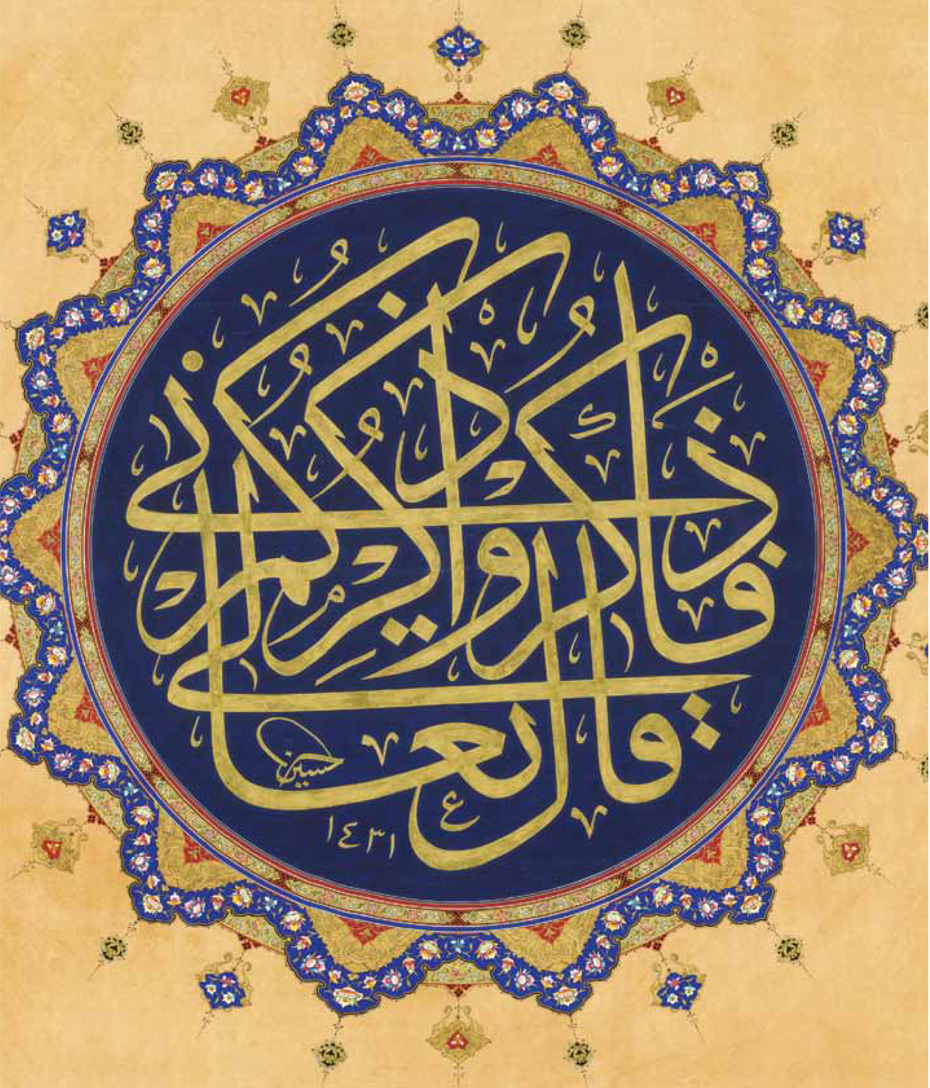 قال تعالى
فاذكروني أذكركم
حسين
١٤٣١